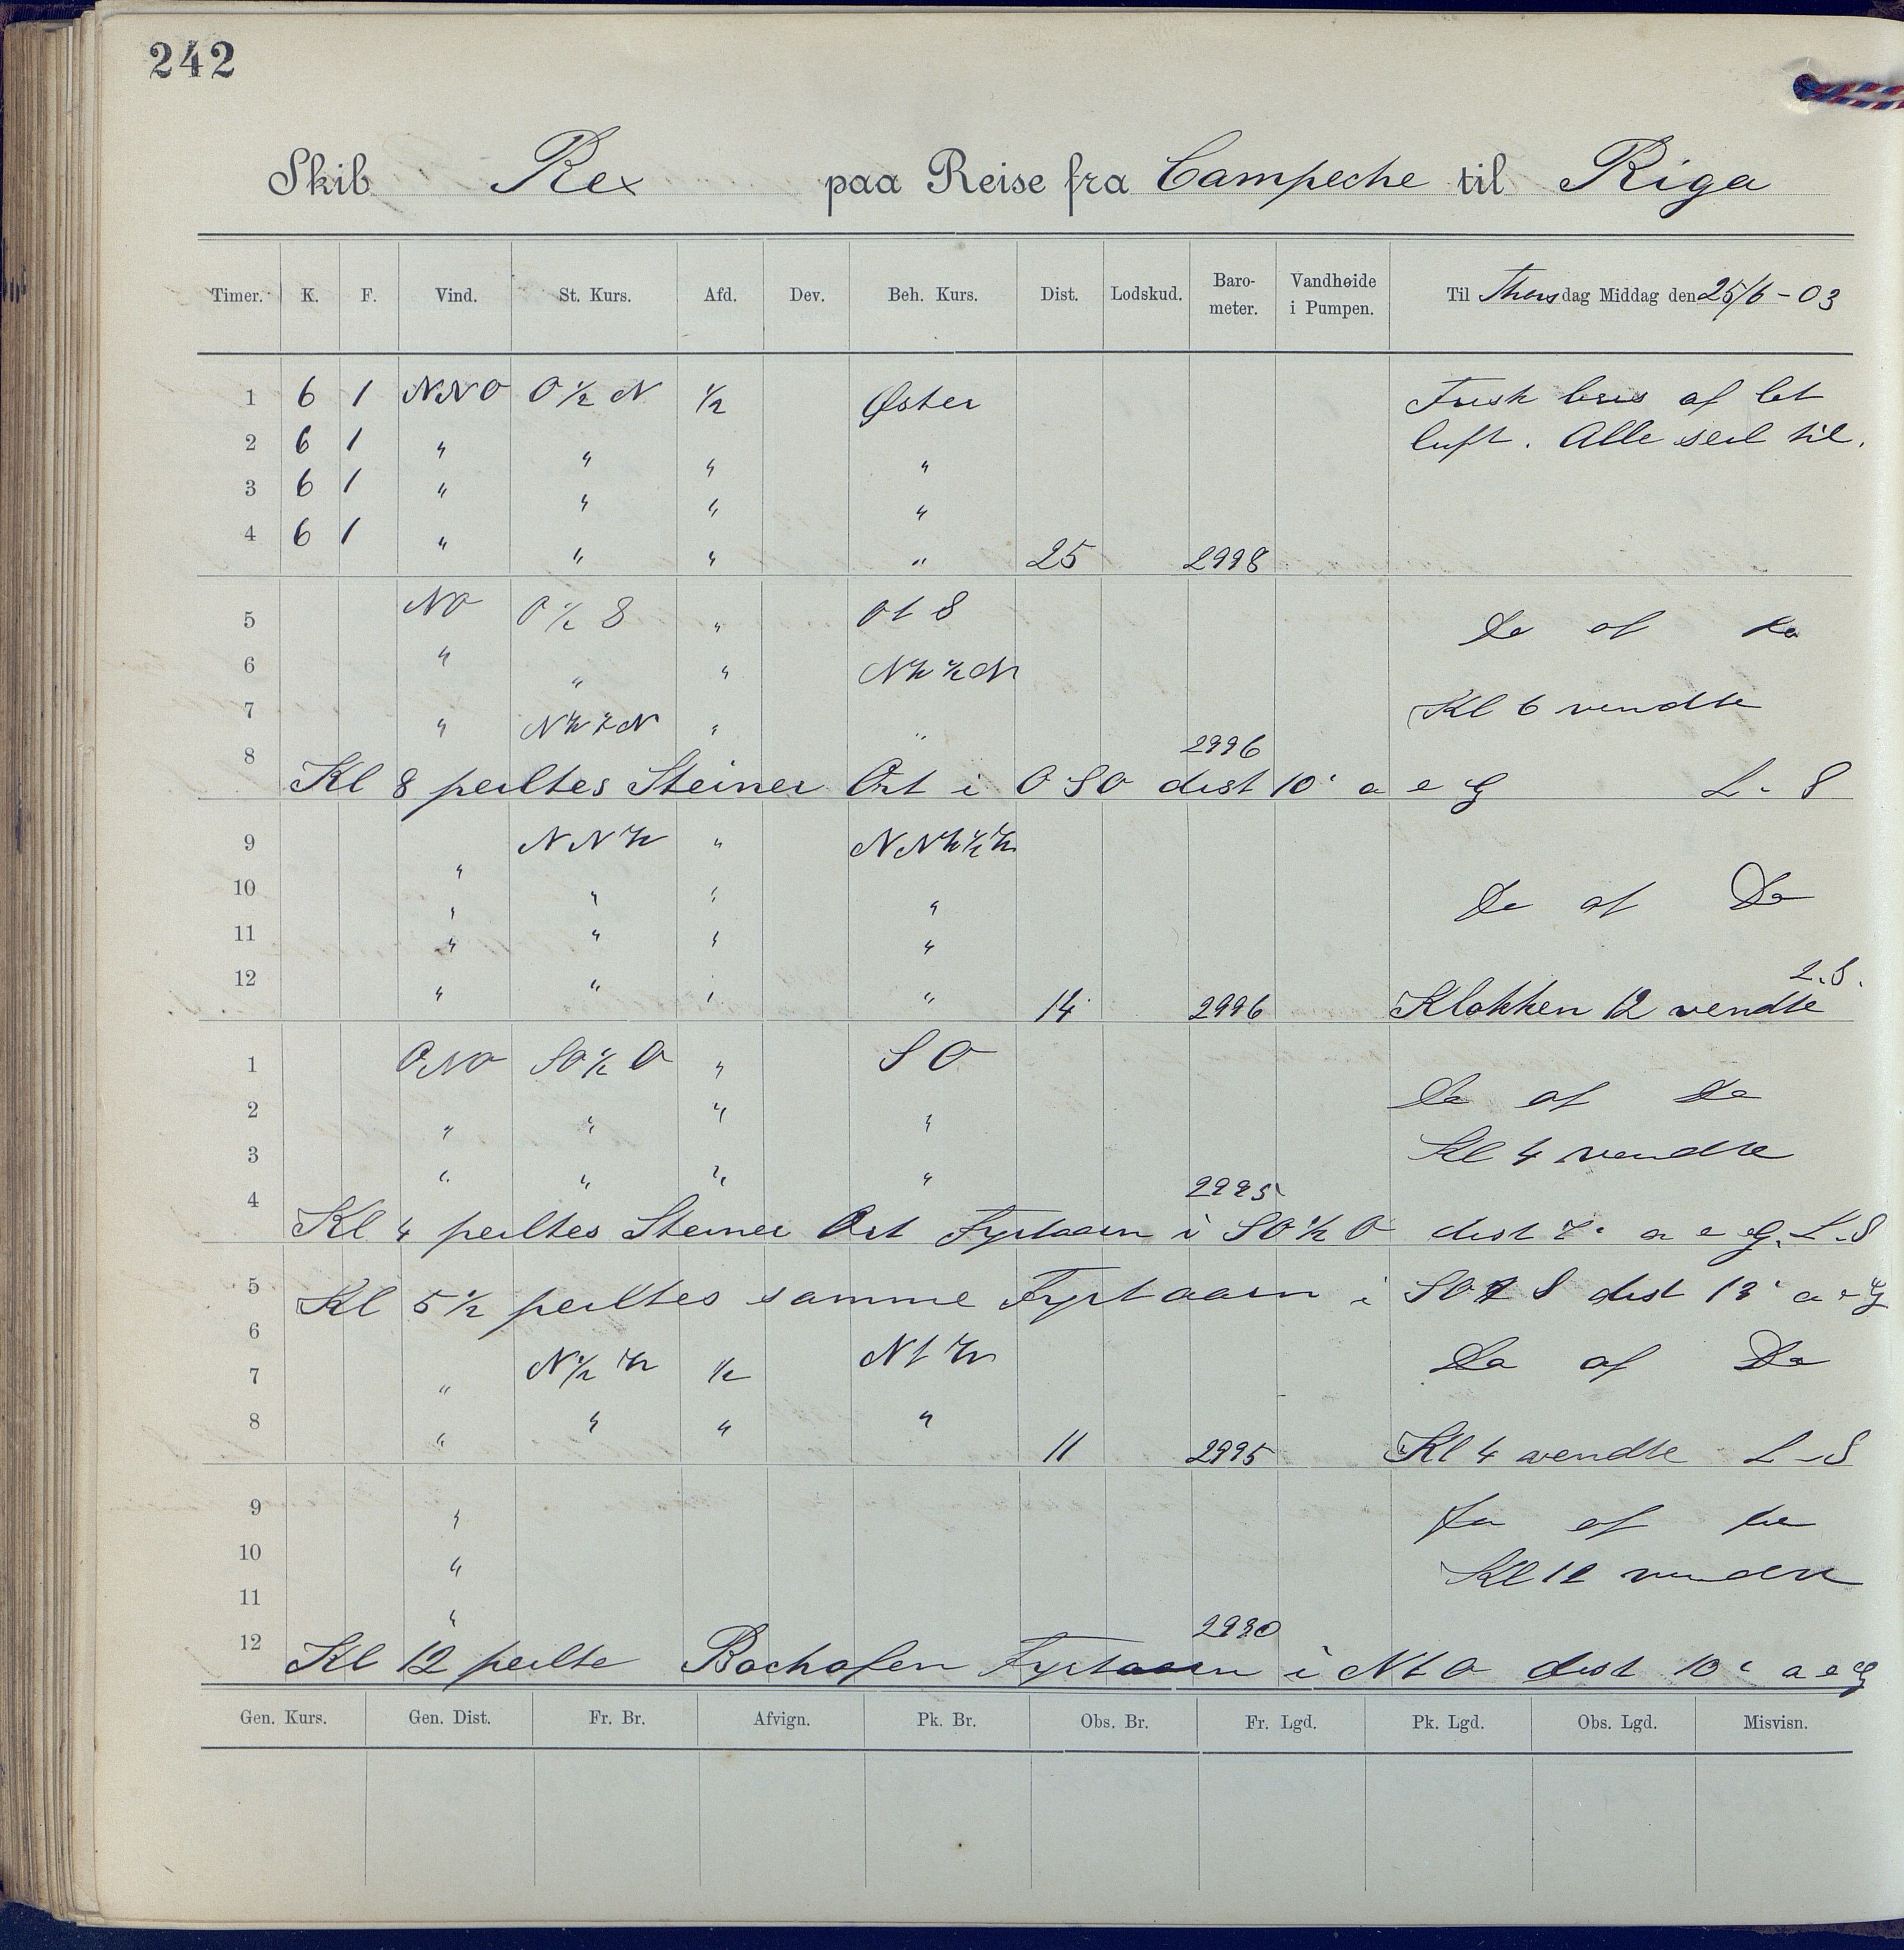 242
Skib Rex paa Reise fra Campeche til Riga
Timer. K. F. Vind. St. Kurs. Afd. Dev. Beh. Kurs. Dist. Lodskud. Barometer. Vandhøide i Pumpen. Til Thorsdag Middag den 25/6-03
1 6 1 NNO O ½ N ½ Øster Frisk bris af let
2 6 1 " " " " luft. Alle seil til.
3 6 1 " " " "
4 6 1 " " " " 25 2998
5 NO O ½ S " O t S Do af Do
6 " " "
7 " " " Kl 6 vendte
8 2996
Kl 8 peiltes Steiner Ort i OSO dist 10' a e G L. S
9 " NNW " NNW ½ W
10 " " " " Do af Do
11 " " " "
12 " " " " 14 2996 Klokken 12 vendte L.S.
1 ONO SO ½ O " SO
2 " " " " Do af Do
3 " " " " Kl 4 vendte
4 2995
Kl 4 peiltes Steiner Ort Fyrtaarn i SO ½ O dist a e G. L.S
5 Kl 5 ½ peiltes samme Fyrtaarn i SO t S dist 13' a e G
6
7 " N ½ W ½ N t W Do af Do
8 " " " " 11 2995 Kl 4 vendte L S
9 " Do af Do
10 " Kl 12 vendte
11 "
12 2990
Kl 12 peilte Bachofen Fyrtaarn i N t O dist 10' a e G
Gen. Kurs. Gen. Dist. Fr. Br. Afvign. Pk. Br. Obs. Br. Fr. Lgd. Pk. Lgd. Obs. Lgd. Misvisn.